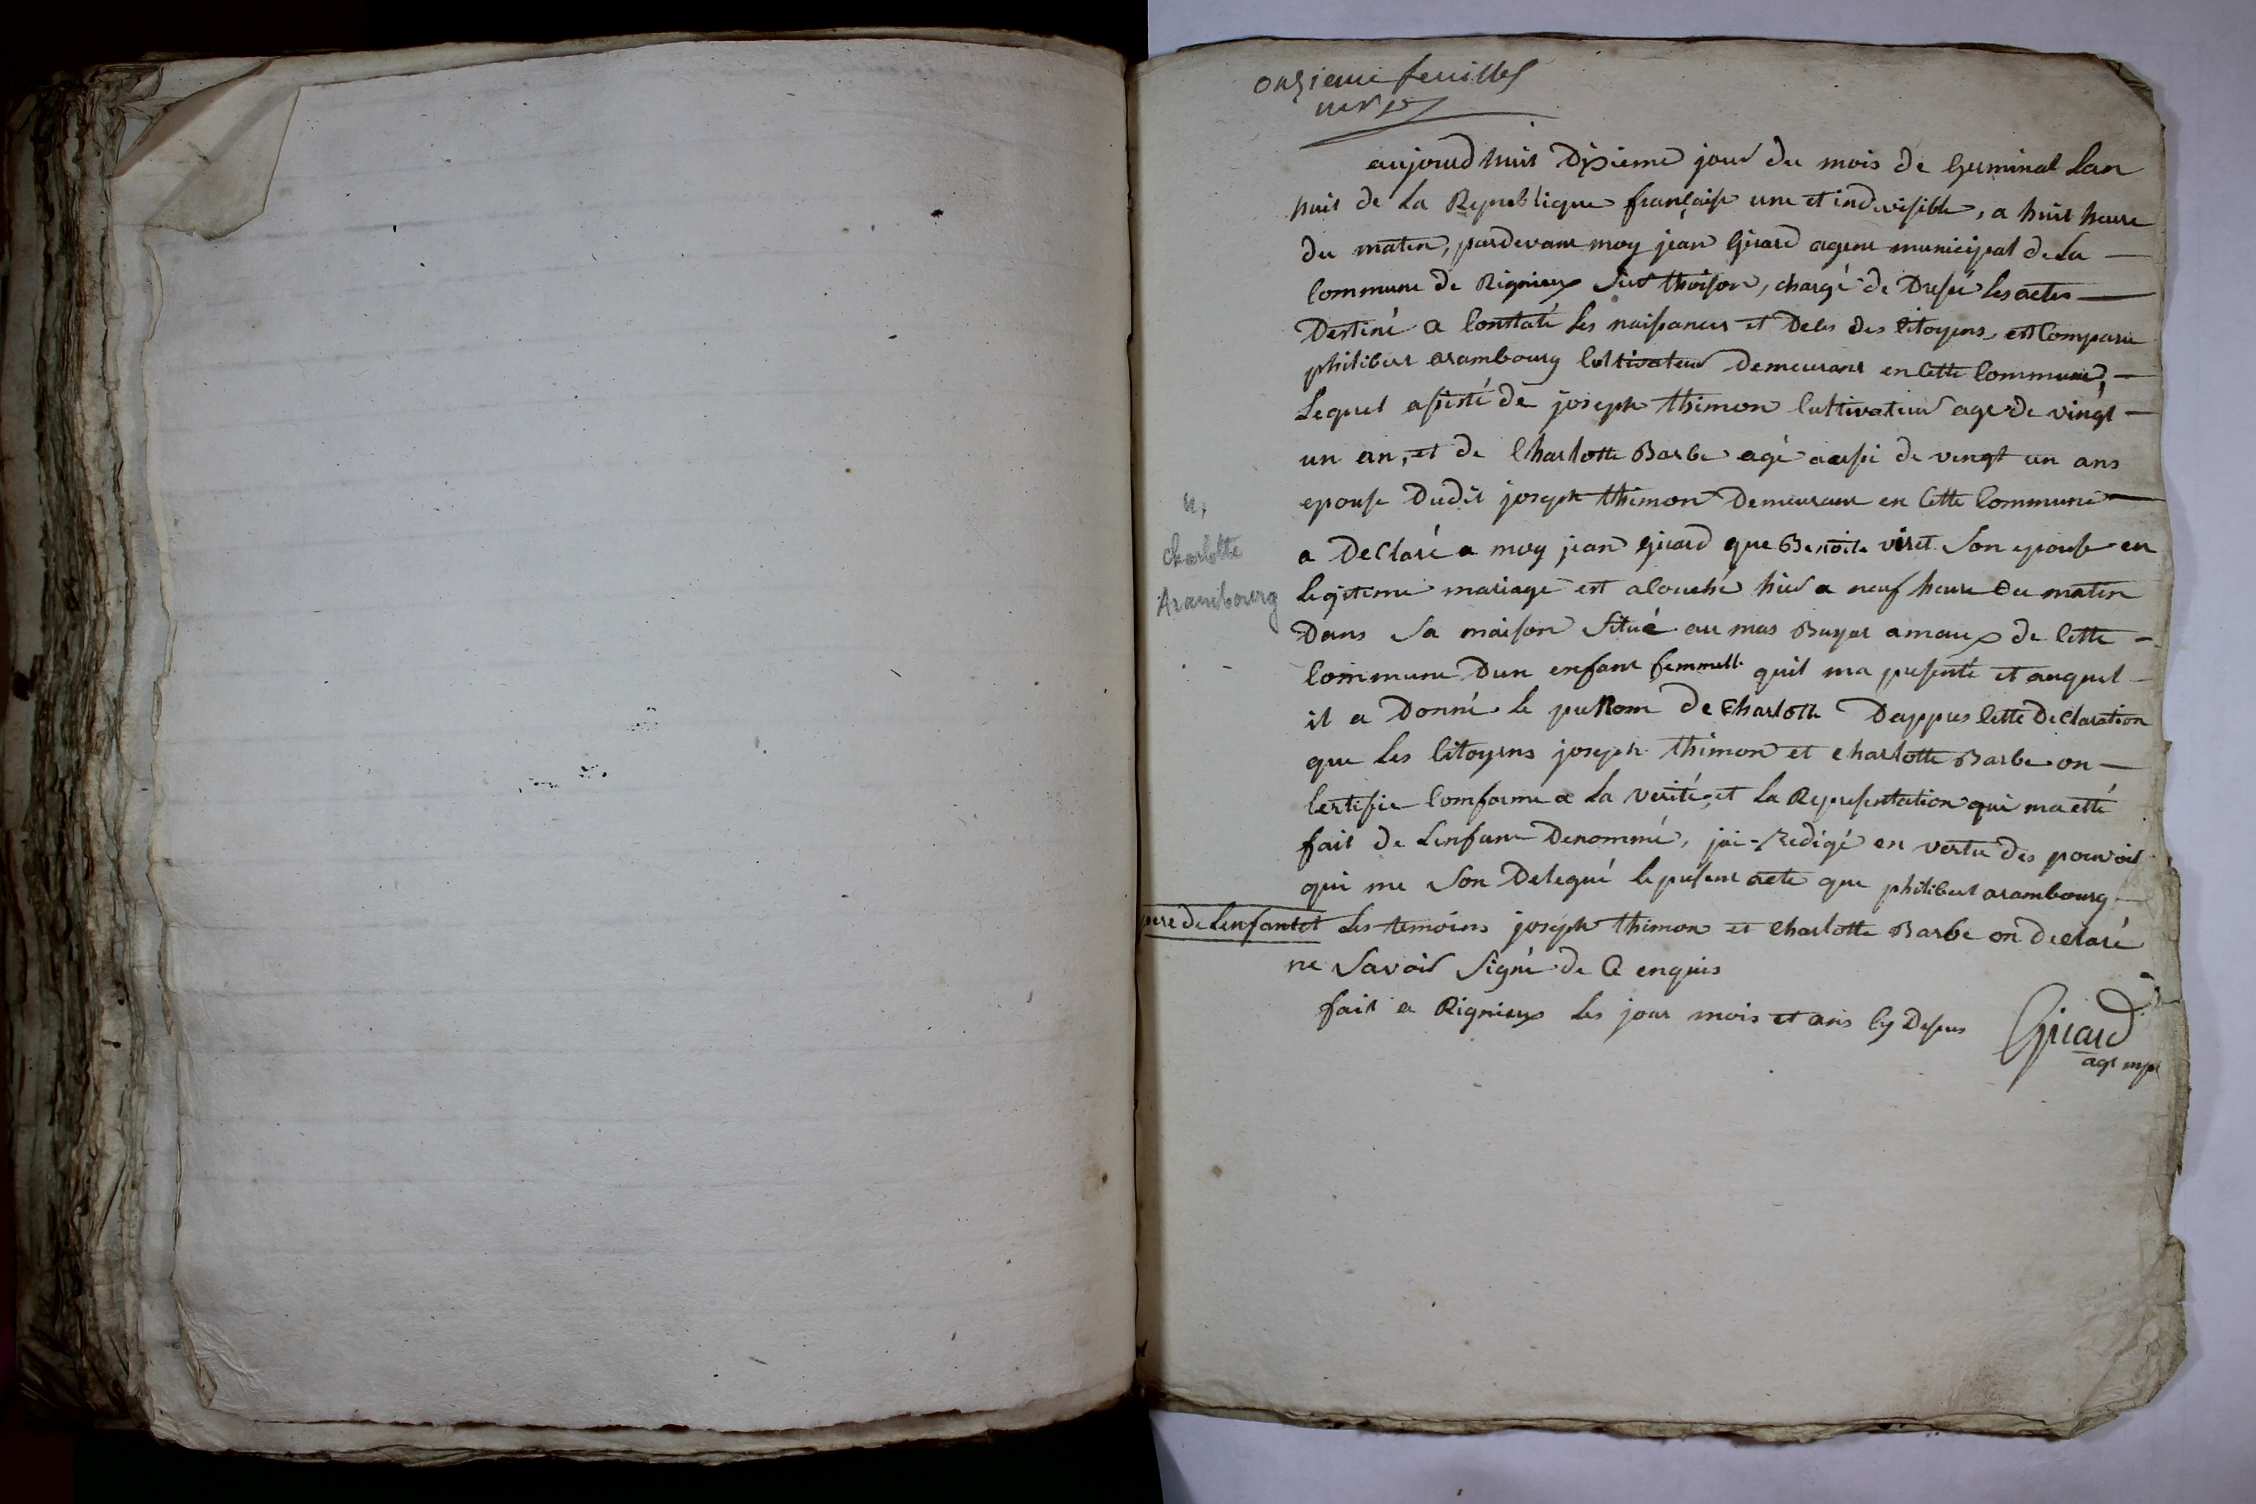 onzieme feuillet
aujourd huit Dixieme jour du mois de Germinal Lan
huit de La Republique française une et indivisible, a huit heure
du maten, pardevant moy jean Girard agent municipal de La
Commune de Rignieux Sur thoison, chargé de Dresé les actes
Destiné a Constaté Les naissances et Deces des Citoyens, est Comparu
philibert arambourg Cultivateur Demeurant en Cette Commune,
Lequel assisté de joseph thimon Cultivateur age de vingt
un an, et de Charlotte Barbe agé aussi de vingt un ans
epouse Dudit joseph thimon Demeurant en Cette Commune
a Declaré a moy jean Girard que Benoite viret Son epouse en
Legiteme mariage est acouché hier a neuf heure du maten
Dans Sa maison Situé au mas de Cette
Commune Dun enfant femmelle quil ma presenté et auquel
il a Donné Le preNom de Charlotte Dappres Cette Declaration
que Les Citoyens joseph thimon et Charlotte Barbe on
Certifie Comforme a La verité, et La Representation qui ma etté
fait de Lenfant Denommé, jai Redigé en vertu des pouvoir
qui me Son Delegué le present acte que philibert arambourg
pere de Lenfant et Les temoins joseph thimon et Charlotte Barbe on declaré
ne Savoir Signé de Ce enquis
fait a Rignieux Les jour mois et ans Cy Desus
Girard
agt mpl
N.
Charlotte
Arambourg